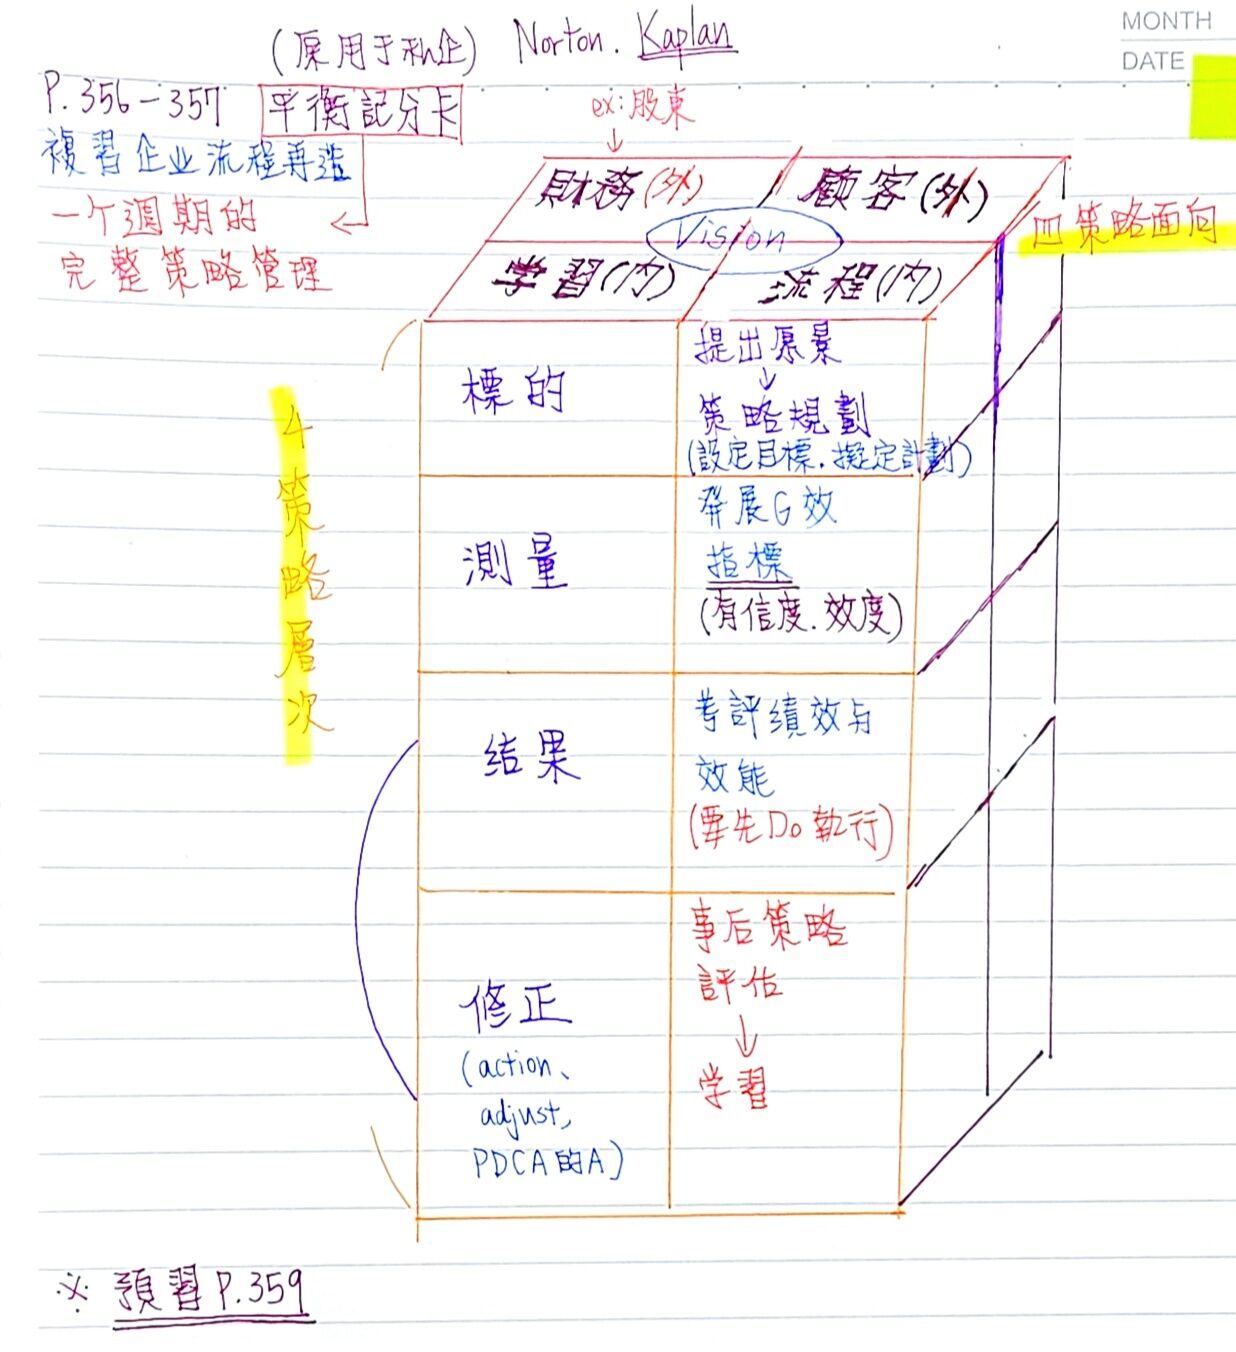 MONTH
DATE
(原用于私企) Norton. Kaplan
P.356-357 平衡記分卡
ex:股東
複習企业流程再造
一个週期的
完整策略管理
財務(外) 顧客(外)
Vision
学習(内) 流程(内)
四策略面向
4策略層次
標的
提出原景
↓
策略規劃
(設定目標.擬定計劃)
測量
發展G效
指標
(有信度.效度)
结果
考評績效与
效能
(要先Do執行)
修正
(action、
adjust,
PDCA的A)
事后策略
評估
↓
学習
※ 預習P.359